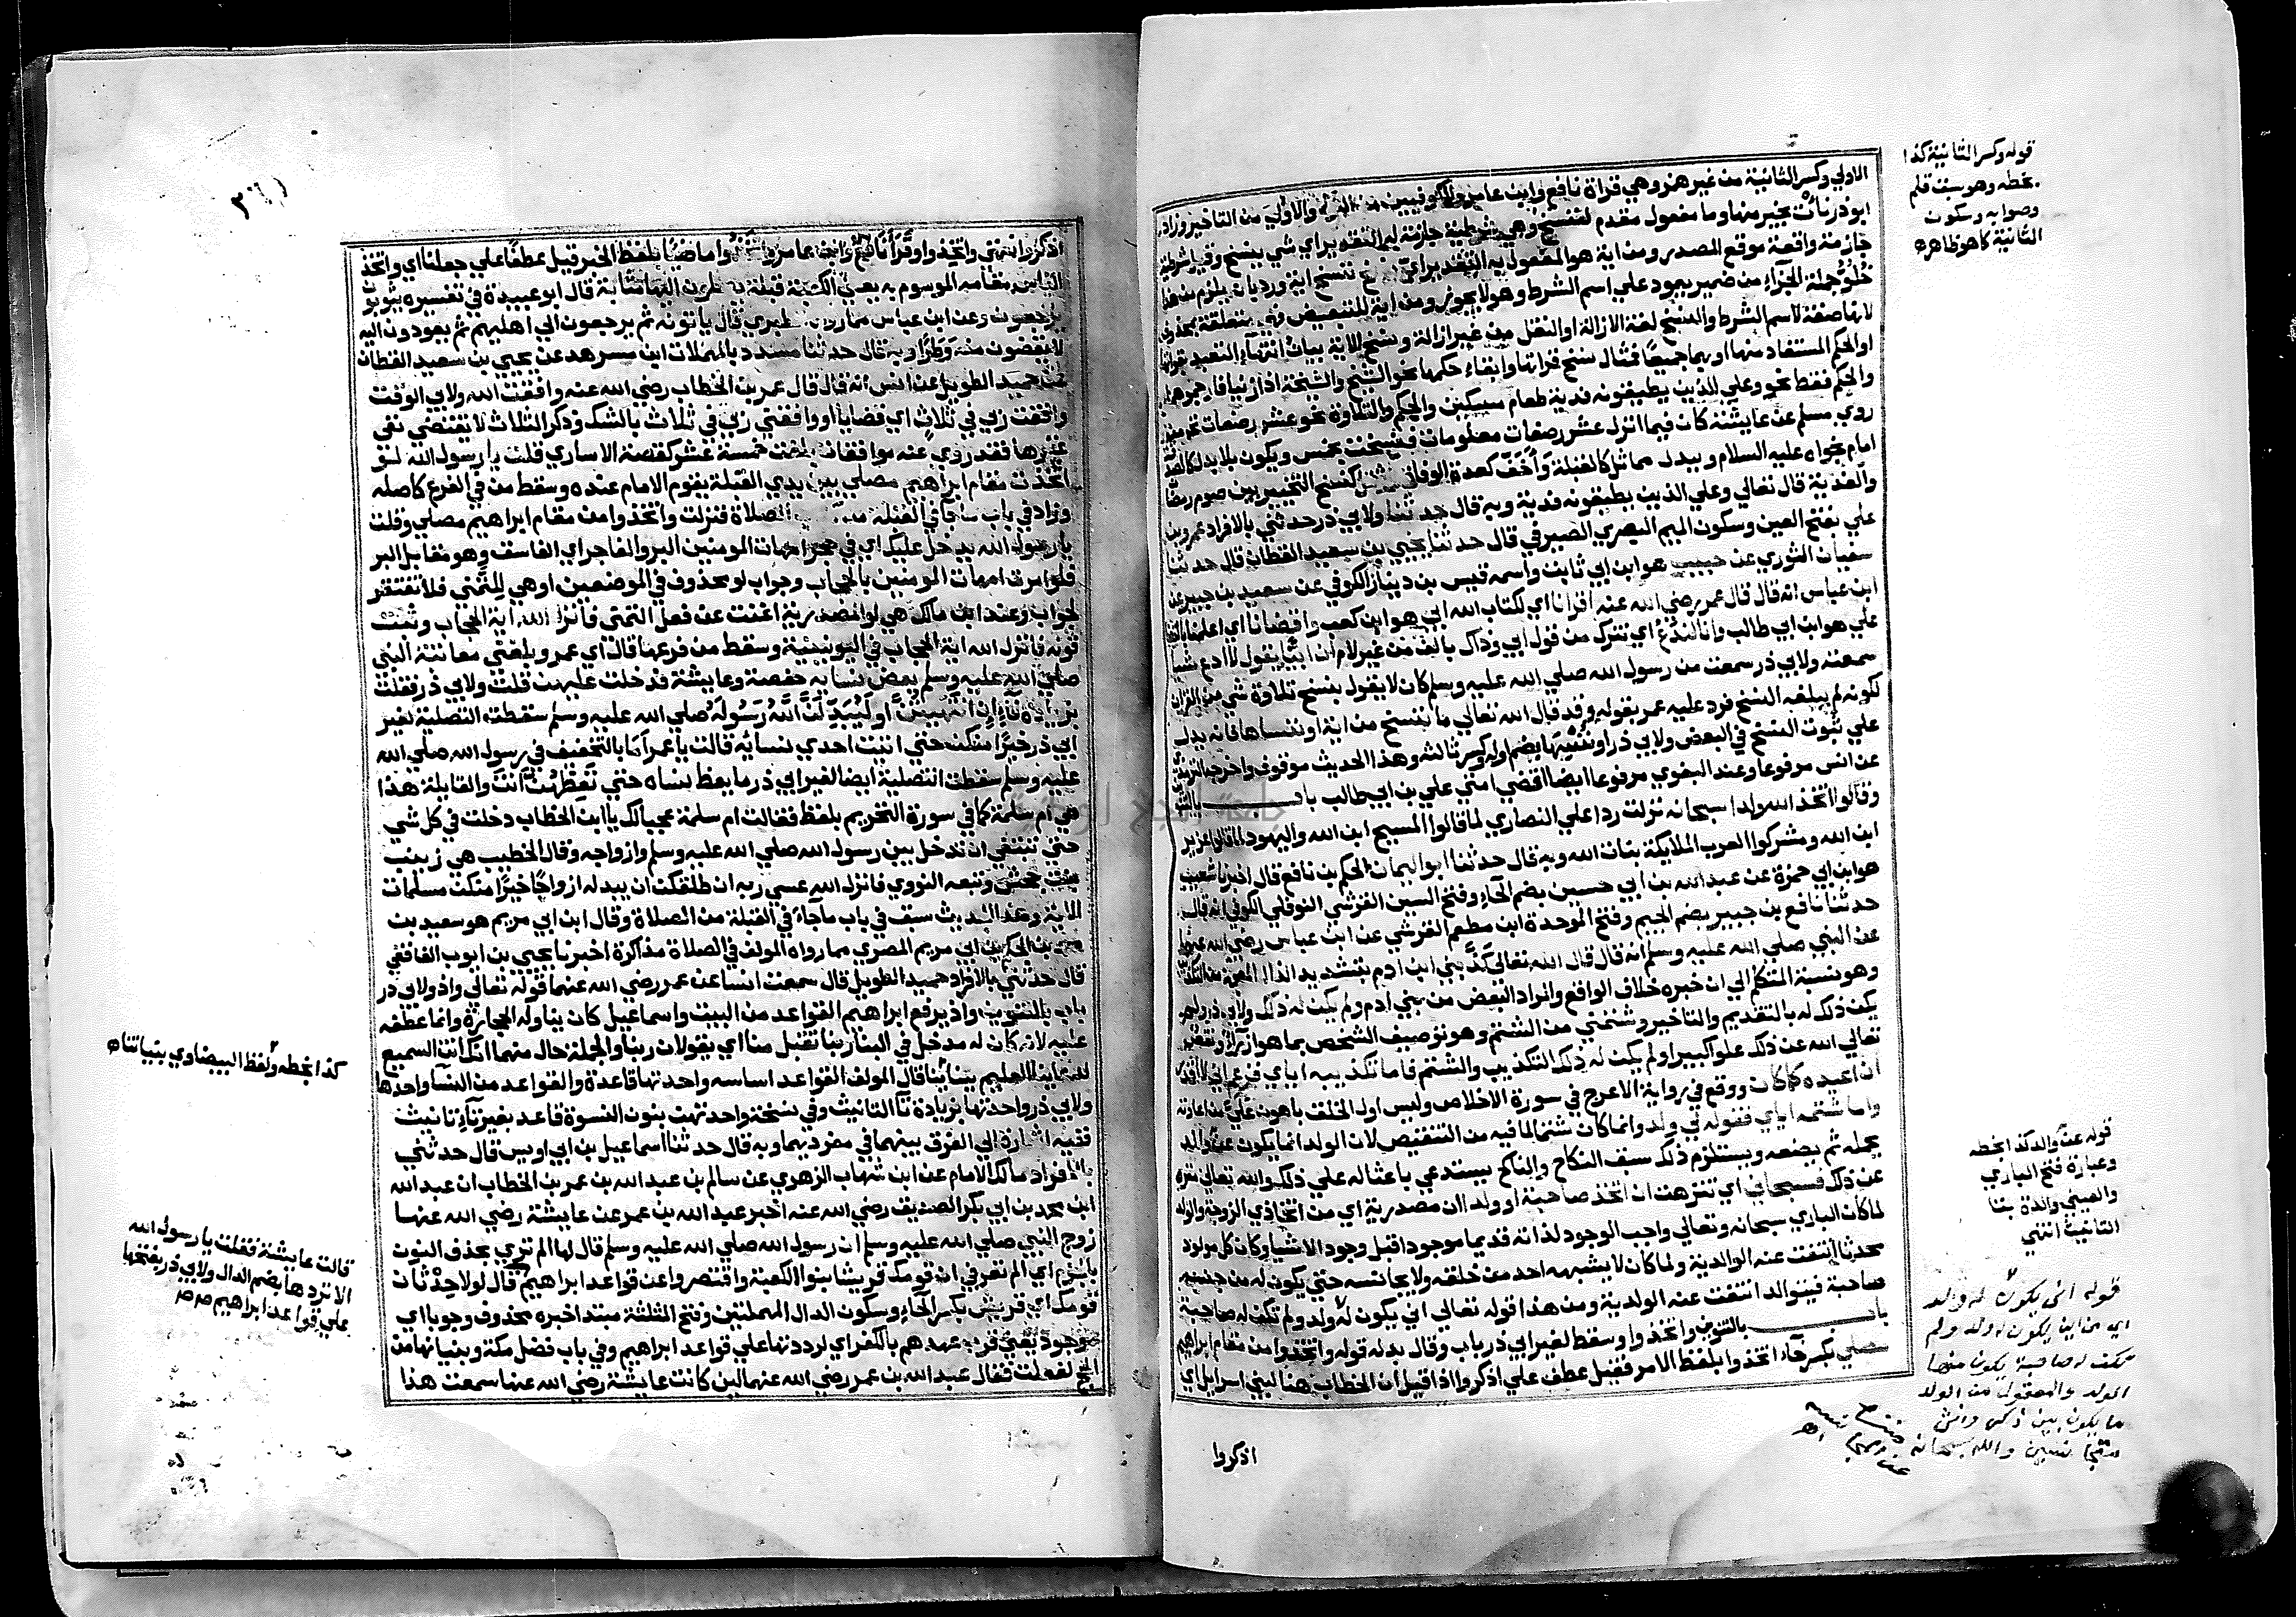 الاولي وكسر الثانية من غير همز وهي قراة نافع وابن عامر والكوفيين من والاولي من التاخير وزاد
ابوذر نات بخير منها وما مفعول مقدم لننسخ وهي شرطية جازمة له التقدير اي شي ننسخ وقيل شرطية
جازمة واقعة موقع المصدر ومن اية هو المفعول به التقدير اي ننسخ اية ورد بان يلزم من هذا
خلو جملة الجزاء من ضمير يعود علي اسم الشرط وهو لا يجوز ومن اية للتبعيض فهي متعلقة بمحذوف
لانها صفة لاسم الشرط والنسخ لغة الازالة او النقل من غير ازالة ونسخ الاية بيان انتهاء التعبد بقراتها
او الحكم المستفاد منها او بهما جميعا فمثال نسخ قراتها وابقاء حكمها نحو الشيخ والشيخة اذا زنيا فارجموهما
والحكم فقط نحو وعلي الذين يطيقونه فدية طعام مسكين والحكم والتلاوة نحو عشر رضعات يحرمن
روي مسلم عن عايشة كان فيما انزل عشر رضعات معلومات فنسخت بخمس ويكون بلا بدل كالصدقة
امام نجواه عليه السلام وببدل مماثل كالقبلة واخف كعدة الوفاة كنسخ التخيير بين صوم رمضان
والفدية قال تعالي وعلي الذين يطيقونه فدية وبه قال حدثنا ولابي ذر حدثني بالافراد عمرو بن
علي بفتح العين وسكون الميم البصري الصيرفي قال حدثنا يحيي بن سعيد القطان قال حدثنا
سفيان الثوري عن حبيب هو ابن ابي ثابت واسمه قيس بن دينار الكوفي عن سعيد بن جبير عن
ابن عباس انه قال قال عمر رضي الله عنه اقرانا اي لكتاب الله ابي هو ابن كعب واقضانا اي اعلمنا بالقضا
علي هو ابن ابي طالب وانا لندع اي نترك من قول ابي وذاك بالف من غير لام ان ابيا يقول لا ادع شيا
سمعته ولابي ذر سمعت من رسول الله صلي الله عليه وسلم كان لا يقول بنسخ تلاوة شي من القران
لكونه لم يبلغه النسخ فرد عليه عمر بقوله وقد قال الله تعالي ما ننسخ من اية او ننساها فانه يدل
علي ثبوت النسخ في البعض ولابي ذر او ننسها بضم اوله وكسر ثالثه وهذا الحديث موقوف واخرجه الترمذي
عن انس مرفوعا وعند البغوي مرفوعا ايضا اقضي امتي علي بن ابي طالب باب بالتنوين
وقالوا اتخذ الله ولدا سبحانه نزلت ردا علي النصاري لما قالوا المسيح ابن الله واليهود لما قالوا عزير
ابن الله ومشركوا العرب الملايكة بنات الله وبه قال حدثنا ابو اليمان الحكم بن نافع قال اخبرنا شعيب
هو ابن ابي حمزة عن عبد الله بن ابي حسين بضم الحاء وفتح السين القرشي النوفلي الكوفي انه قال
حدثنا نافع بن جبير بضم الجيم وفتح الموحدة ابن مطعم القرشي عن ابن عباس رضي الله عنهما
عن النبي صلي الله عليه وسلم انه قال قال الله تعالي كذبني ابن ادم بتشديد الذال المعجمة من التكذيب
وهو نسبة المتكلم الي ان خبره خلاف الواقع والمراد البعض من بني ادم ولم يكن له ذلك ولابي ذر ولم
يكن ذلك له بالتقديم والتاخير وشتمني من الشتم وهو توصيف الشخص بما هو ازراء ونقص
تعالي الله عن ذلك علوا كبيرا ولم يكن له ذلك التكذيب والشتم فاما تكذيبه اياي فزعم اني لا اقدر
ان اعيده كما كان ووقع في رواية الاعرج في سورة الاخلاص وليس اول الخلق باهون علي من اعادته
واما شتمه اياي فقوله لي ولد وانما كان شتما لما فيه من التنقيص لان الولد انما يكون عن والد
يحمله ثم يضعه ويستلزم ذلك سبق النكاح والناكح يستدعي باعثا له علي ذلك والله تعالي منزه
عن ذلك فسبحاني اي تنزهت ان اتخذ صاحبة او ولدا ان مصدرية اي من اتخاذي الزوجة والولد
لما كان الباري سبحانه وتعالي واجب الوجود لذاته قديما موجودا قبل وجود الاشيا وكان كل مولود
محدثا انتفت عنه الوالدية ولما كان لا يشبهه احد من خلقه ولا يجانسه حتي يكون له من جنسه
صاحبة فيتوالد انتفت عنه الولدية ومن هذا قوله تعالي اني يكون له ولد ولم تكن له صاحبة
باب بالتنوين واتخذوا وسقط لغير ابي ذر باب وقال بدله قوله واتخذوا من مقام ابراهيم
مصلي بكسر خاء اتخذوا بلفظ الامر فقيل عطف علي اذكروا اذا قيل ان الخطاب هنا لبني اسرايل اي
اذكروا
قوله وكسر الثانية كذا
بخطه وهو سبق قلم
وصوابه وسكون
الثانية كما هو ظاهر اه
قوله عن والد كذا بخطه
وعبارة فتح الباري
والعيني والدة بتا
التانيث انتهي
قوله اني يكون له ولد
اي من اين يكون له ولد ولم
تكن له صاحبة يكون منها
الولد والمعقول من الولد
ما يكون بين ذكر وانثي
متجانسين والله سبحانه
منزه
اذكروا انتهي واتخذوا وقرا نافع وابن عامر واتخذوا ماضيا بلفظ الخبر قيل عطفا علي جعلنا اي واتخذ
الناس مقامه الموسوم به يعني الكعبة قبلة يصلون اليها مثابة قال ابو عبيدة في تفسيره يثوبون
يرجعون وعن ابن عباس مما رواه الطبري قال ياتونه ثم يرجعون الي اهليهم ثم يعودون اليه
لا يقضون منه وطرا وبه قال حدثنا مسدد بالمهملات ابن مسرهد عن يحيي بن سعيد القطان
عن حميد الطويل عن انس انه قال قال عمر بن الخطاب رضي الله عنه وافقت الله ولابي الوقت
وافقت ربي في ثلاث اي قضايا او وافقني ربي في ثلاث بالشك وذكر الثلاث لا يقتضي نفي
غيرها فقد روي عنه موافقات بلغت خمسة عشر كقصة الاساري قلت يا رسول الله لو
اتخذت مقام ابراهيم مصلي بين يدي القبلة يقوم الامام عنده وسقط من في الفرع كاصله
وزاد في باب ما جا في القبلة من الصلاة فنزلت واتخذوا من مقام ابراهيم مصلي وقلت
يا رسول الله يدخل عليك اي في حجر امهات المومنين البر والفاجر اي الفاسق وهو مقابل البر
فلو امرت امهات المومنين بالحجاب وجواب لو محذوف في الموضعين او هي للتمني فلا تفتقر
لجواب وعند ابن مالك هي لو المصدرية اغنت عن فعل التمني فانزل الله اية الحجاب وثبت
قوله فانزل الله اية الحجاب في اليونينية وسقط من فرعها قال اي عمر وبلغني معاتبة النبي
صلي الله عليه وسلم بعض نسايه حفصة وعايشة فدخلت عليهن قلت ولابي ذر فقلت
بزيادة فاء ان انتهيتن او ليبدلن الله رسوله صلي الله عليه وسلم سقطت التصلية لغير
ابي ذر خيرا منكن حتي اتيت احدي نسايه قالت يا عمر اما بالتخفيف في رسول الله صلي الله
عليه وسلم سقطت التصلية ايضا لغير ابي ذر ما يعظ نساه حتي تعظهن انت والقايلة هذا
هي ام سلمة كما في سورة التحريم بلفظ فقالت ام سلمة عجبا لك يا ابن الخطاب دخلت في كل شي
حتي تبتغي ان تدخل بين رسول الله صلي الله عليه وسلم وازواجه وقال الخطيب هي زينب
بنت جحش وتبعه النووي فانزل الله عسي ربه ان طلقكن ان يبدله ازواجا خيرا منكن مسلمات
الاية وهذا الحديث سبق في باب ما جاء في القبلة من الصلاة وقال ابن ابي مريم هو سعيد بن
محمد بن الحكم بن ابي مريم المصري مما رواه المولف في الصلاة مذاكرة اخبرنا يحيي بن ايوب الغافقي
قال حدثني بالافراد حميد الطويل قال سمعت انسا عن عمر رضي الله عنهما قوله تعالي واذ ولابي ذر
باب بالتنوين واذ يرفع ابراهيم القواعد من البيت واسماعيل كان يناوله الحجارة وانما عطفه
عليه لانه كان له مدخل في البنا ربنا تقبل منا اي يقولان ربنا والجملة حال منهما انك انت السميع
لدعاينا العليم ببناينا قال المولف القواعد اساسه واحدتها قاعدة والقواعد من النساء واحدها
ولابي ذر واحدتها بزيادة تا التانيث وفي نسخة واحدتهن بنون النسوة قاعد بغير تاء تانيث
ففيه اشارة الي الفرق بينهما في مفرديهما وبه قال حدثنا اسماعيل بن ابي اويس قال حدثني
بالافراد مالك الامام عن ابن شهاب الزهري عن سالم بن عبد الله بن عمر بن الخطاب ان عبد الله
ابن محمد بن ابي بكر الصديق رضي الله عنه اخبر عبد الله بن عمر عن عايشة رضي الله عنها
زوج النبي صلي الله عليه وسلم ان رسول الله صلي الله عليه وسلم قال لها الم تري بحذف النون
بالجزم اي الم تعرفي ان قومك قريشا بنوا الكعبة واقتصروا عن قواعد ابراهيم قال لولا حدثان
قومك اي قريش بكسر الحاء وسكون الدال المهملتين وفتح المثلثة مبتدا خبره محذوف وجوبا اي
موجود يعني قرب عهدهم بالكفر اي لرددتها علي قواعد ابراهيم وفي باب فضل مكة وبنيانها من
الحج لفعلت فقال عبد الله بن عمر رضي الله عنهما لين كانت عايشة رضي الله عنها سمعت هذا
كذا بخطه ولفظ البيضاوي بنياتنا اه
قالت عايشة فقلت يا رسول الله
الا تردها بضم الدال ولابي ذر بفتحها
علي قواعد ابراهيم صح صح